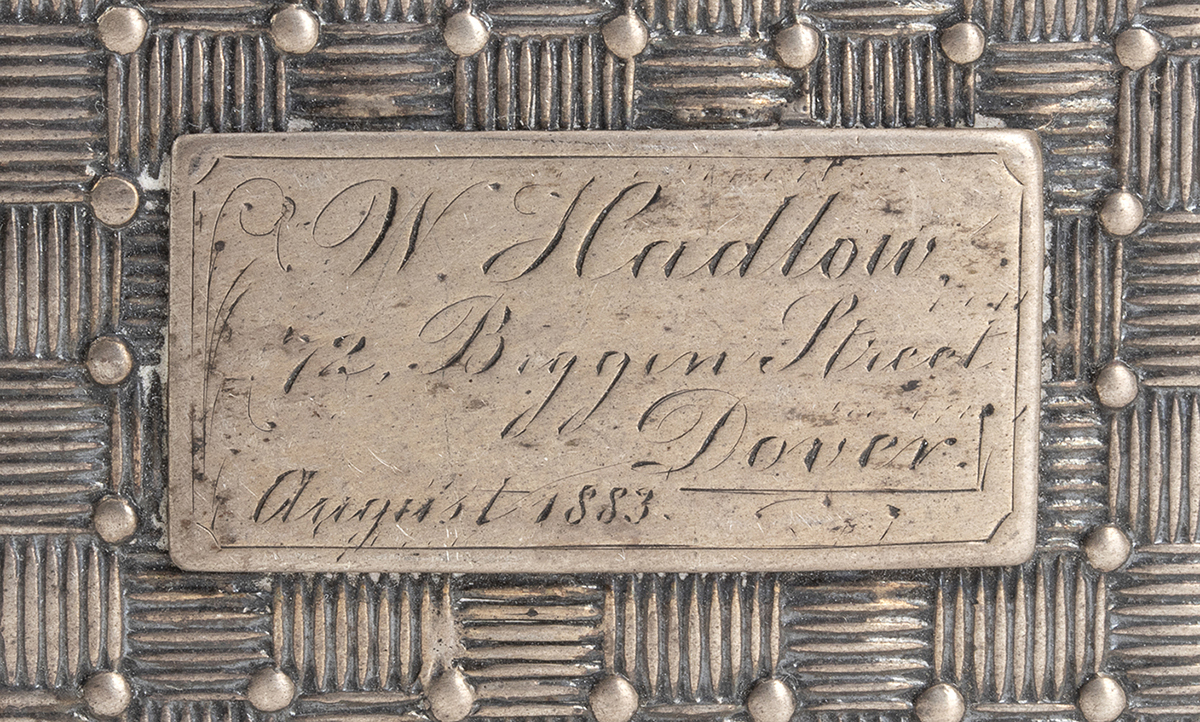 W Hadlow
72, Biggen Street
Dover.
August 1883.